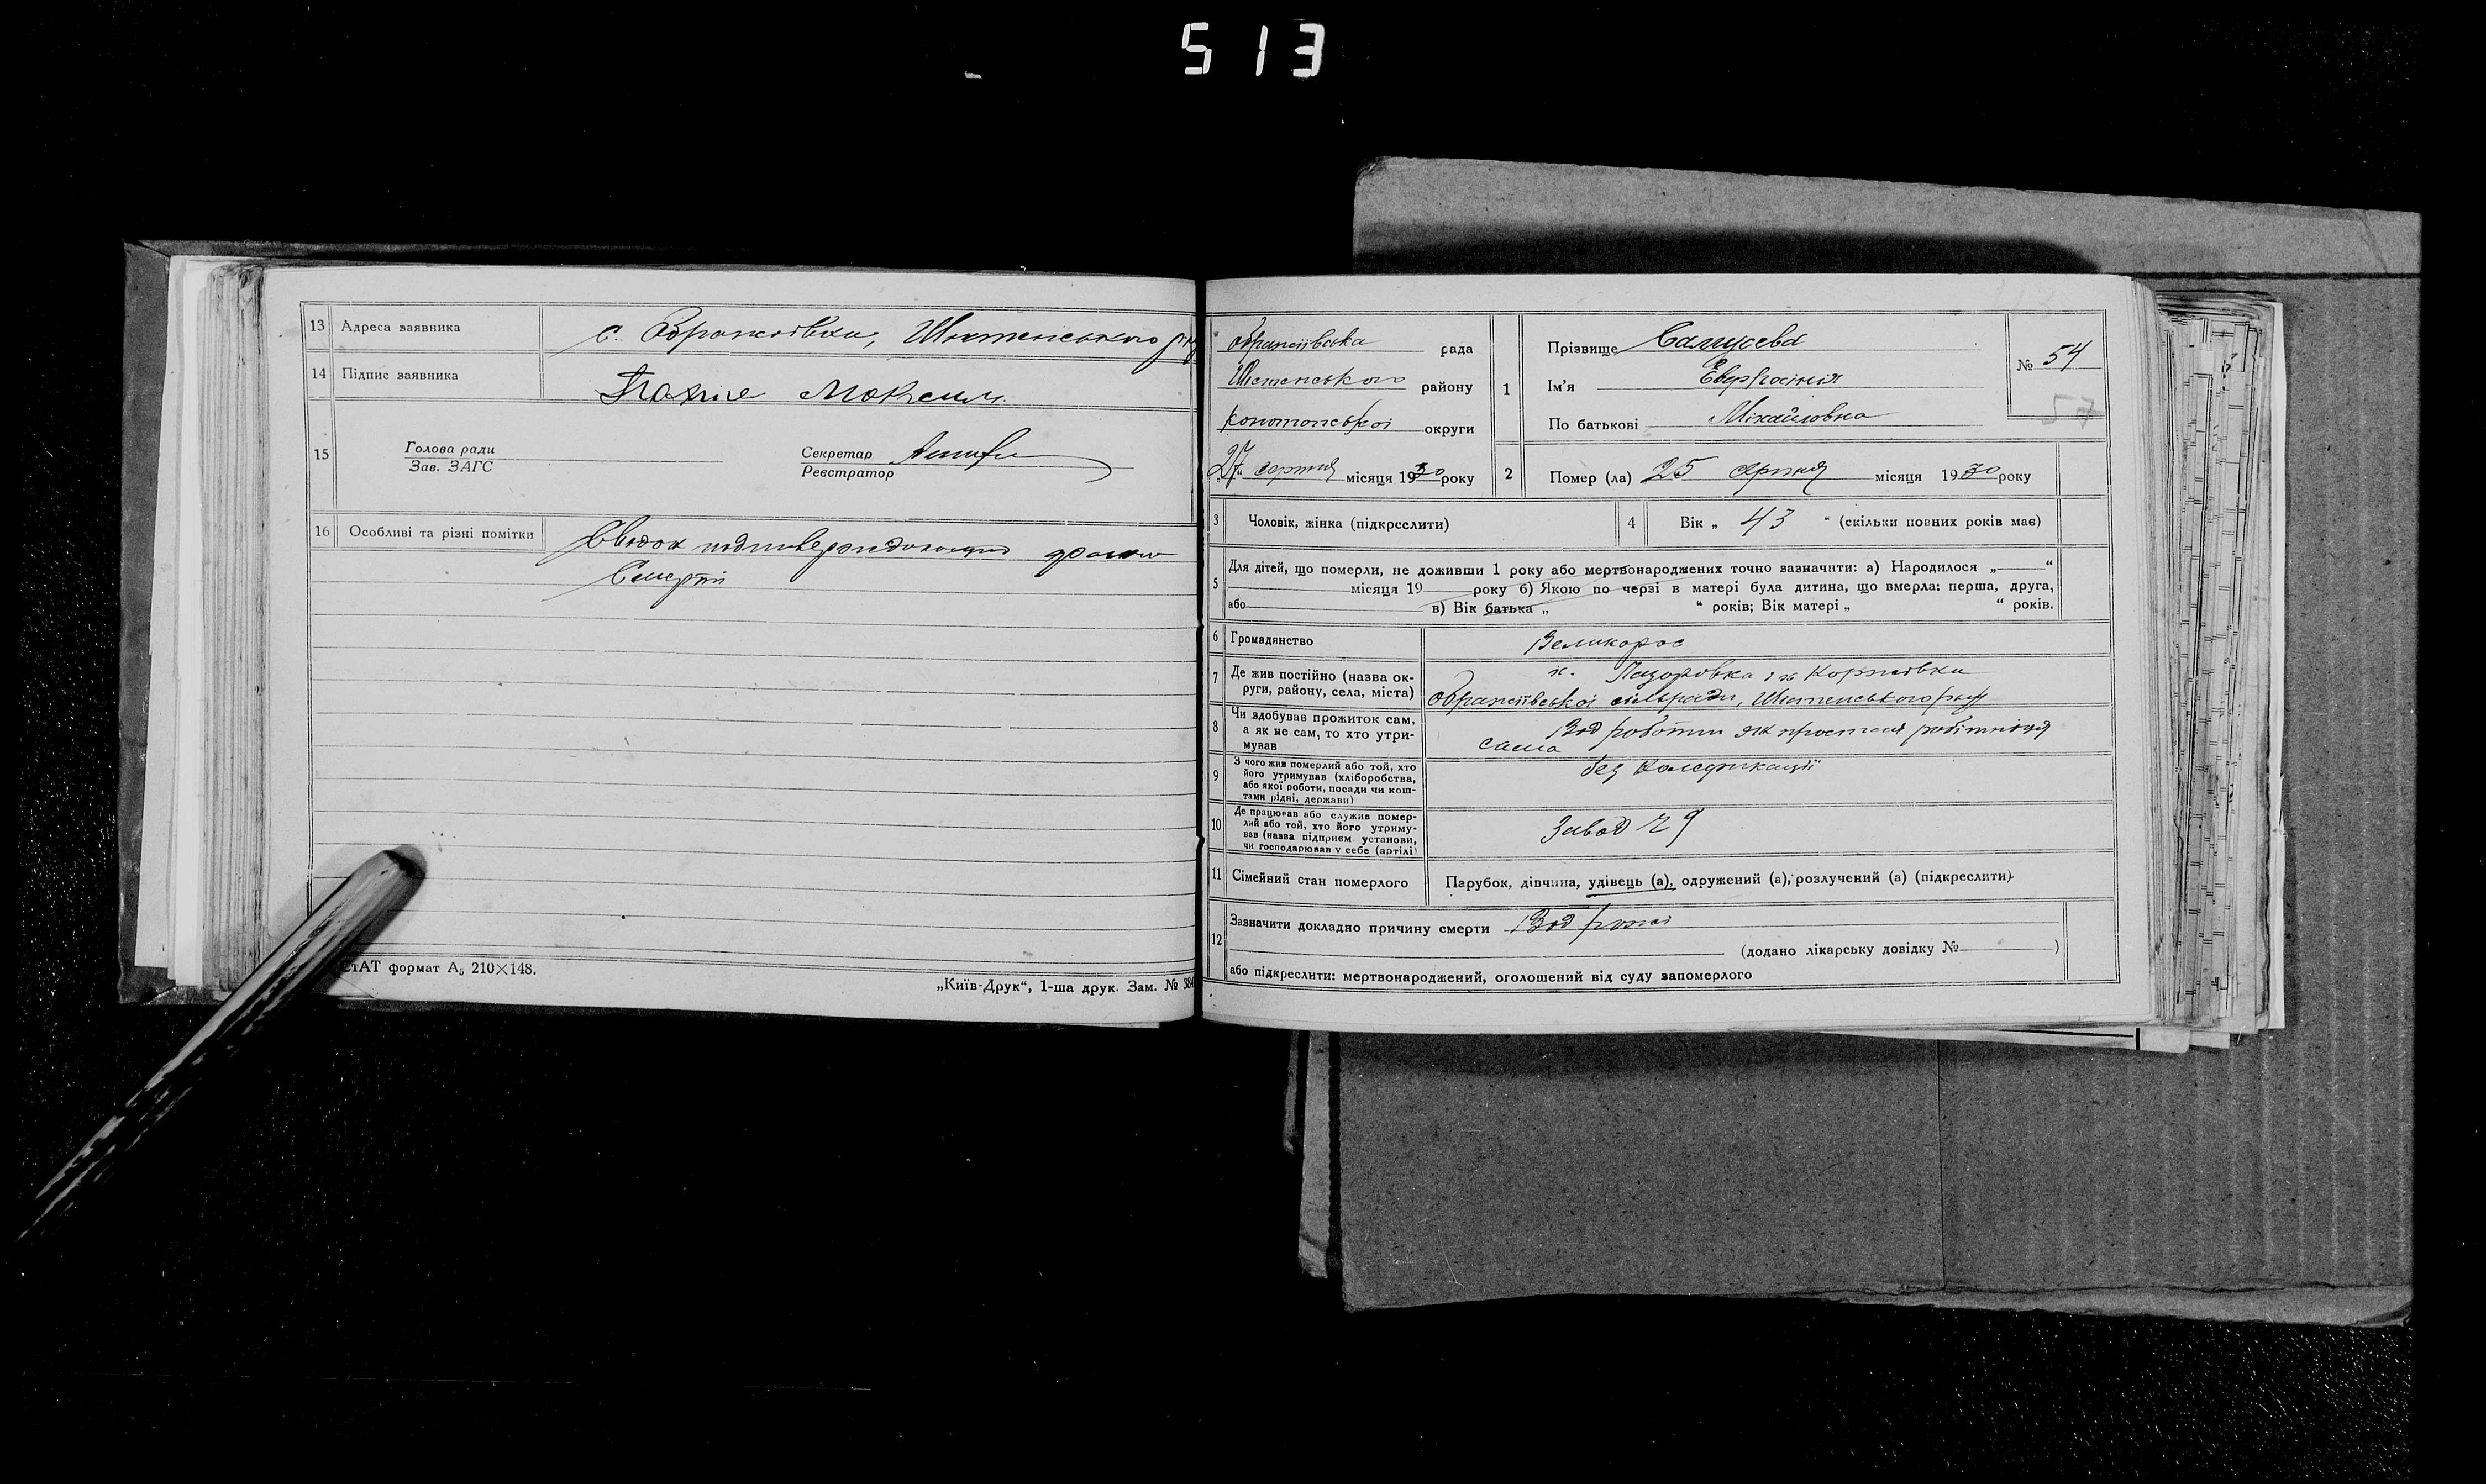 513
13 Адреса заявника с. Ображіївка, Шостенського р-ну
14 Підпис заявника Максим
15 Голова ради
Зав. ЗАГС
Секретар
Реєстратор
16 Особливі та різні помітки
Смерти
СтАТ формат А5 210×148.
„Київ-Друк“, 1-ша друк. Зам. № 384
Ображіївська рада
Шостенського району
Конотопської округи
„27“ серпня місяця 1930 року
1 Прізвище
Ім'я Евфросінія
По батькові Міхайловна
№ 54
57
2 Помер (ла) 25 серпня місяця 1930 року
3 Чоловік, жінка (підкреслити)
4 Вік „ 43 “ (скільки повних років має)
5 Для дітей, що померли, не доживши 1 року або мертвонароджених точно зазначити: а) Народилося „ “
місяця 19 року б) Якою по черзі в матері була дитина, що вмерла: перша, друга,
або в) Вік батька „ “ років; Вік матері „ “ років.
6 Громадянство Великорос
7 Де жив постійно (назва ок-
руги, району, села, міста)
х.
Ображіївської сільради, Шостенського р-ну
8 Чи здобував прожиток сам,
а як не сам, то хто утри-
мував
сама
Від роботи як простая робітниця
9 З чого жив померлий або той, хто
його утримував (хліборобства,
або якої роботи, посади чи кош-
тами рідні, держави)
без
10 Де працював або служив помер-
лий або той, хто його утриму-
вав (назва підприєм. установи,
чи господарював у себе (артілі)
Завод № 9
11 Сімейний стан померлого Парубок, дівчина, удівець (а), одружений (а), розлучений (а) (підкреслити)
12 Зазначити докладно причину смерти Від
(додано лікарську довідку № )
або підкреслити: мертвонароджений, оголошений від суду запомерлого